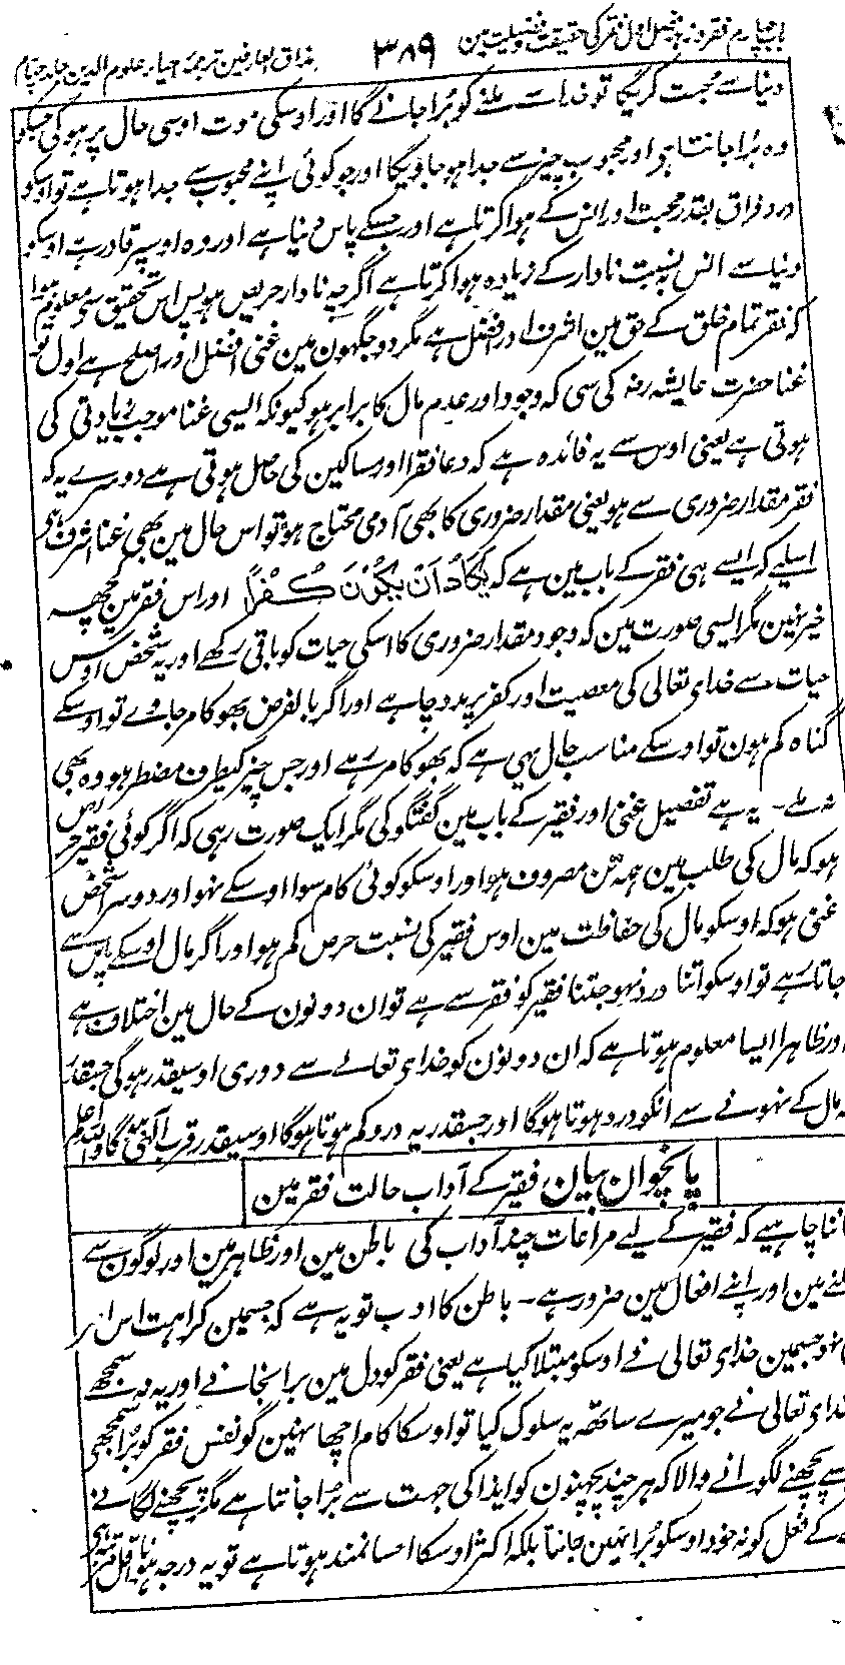 باب چہارم فقر و زہد فصل اول فقر کی حقیقت و فضیلت مین ۳۸۹ مذاق العارفین ترجمہ احیاء علوم الدین جلد چہارم
دنیا سے محبت کریگا تو خدا سے ملنے کو بُرا جانے گا اور اوسکی موت اوسی حال پر ہوگی جسکو
وہ بُرا جانتا ہو اور محبوب چیز سے جدا ہو جاویگا اور جو کوئی اپنے محبوب سے جدا ہوتا ہے تو اوسکو
درد فراق بقدر محبت اور انس کے ہوا کرتا ہے اور جسکے پاس دنیا ہے اور وہ اوسپر قادر ہے اوسکو
دنیا سے انس بہ نسبت نادار کے زیادہ ہوا کرتا ہے اگرچہ نادار حریص ہو پس اس تحقیق سے معلوم ہوا
کہ فقر تمام خلق کے حق مین اشرف اور افضل ہے مگر دو جگہون مین غنی افضل اور اصلح ہے اول تو
غنا حضرت عایشہ رضہ کی سی کہ وجود اور عدم مال کا برابر ہو کیونکہ ایسی غنا موجب زیادتی کی
ہوتی ہے یعنی اوس سے یہ فائدہ ہے کہ دعا فقرا اور مساکین کی حاصل ہوتی ہے دوسرے یہ کہ
فقر مقدار ضروری سے ہو یعنی مقدار ضروری کا بھی آدمی محتاج ہو تو اس حال مین بھی غنا اشرف ہی
اسلیے کہ ایسے ہی فقر کے باب مین ہے کہ یَکَادُ اَنْ یَکُوْنَ کُفْرًا اور اس فقر مین کچھہ
خیر نہین مگر ایسی صورت مین کہ وجود مقدار ضروری کا اسکی حیات کو باقی رکھے اور یہ شخص اوس
حیات سے خدای تعالی کی معصیت اور کفر پر مدد چاہے اور اگر بالفرض بھوکا مر جاوے تو اوسکے
گناہ کم ہون تو اوسکے مناسب حال یہی ہے کہ بھوکا مر رہے اور جس چیز کیطرف مضطر ہو وہ بھی
نہ ملے۔ یہ ہے تفصیل غنی اور فقیر کے باب مین گفتگو کی مگر ایک صورت رہی کہ اگر کوئی فقیر حریص
ہو کہ مال کی طلب مین ہمہ تن مصروف ہو اور اوسکو کوئی کام سوا اوسکے نہو اور دوسرا شخص
غنی ہو کہ اوسکو مال کی حفاظت مین اوس فقیر کی نسبت حرص کم ہو اور اگر مال اوسکے پاس سے
جاتا رہے تو اوسکو اتنا درد نہو جتنا فقیر کو فقر سے ہے تو ان دونون کے حال مین اختلاف ہے
اور ظاہرا ایسا معلوم ہوتا ہے کہ ان دونون کو خدای تعالے سے دوری اوسیقدر ہوگی جسقدر
مال کے نہونے سے انکو درد ہوتا ہوگا اور جسقدر یہ درد کم ہوتا ہوگا اوسیقدر قرب الٰہی ہوگا واللہ اعلم
پانچوان بیان فقیر کے آداب حالت فقر مین
جاننا چاہیے کہ فقیر کے لیے مراعات چند آداب کی باطن مین اور ظاہر مین اور لوگون سے
ملنے مین اور اپنے افعال مین ضرور ہے۔ باطن کا ادب تو یہ ہے کہ جسمین کراہت اس امر
نہو جسمین خدای تعالی نے اوسکو مبتلا کیا ہے یعنی فقر کو دل مین برا نجانے اور یہ نہ سمجھے
خدای تعالی نے جو میرے ساتھہ یہ سلوک کیا تو اوسکا کام اچھا نہین گو نفس فقر کو بُرا سمجھے
جیسے پچھنے لگورانے والا کہ ہر چند پچھنون کو ایذا کی جہت سے بُرا جانتا ہے مگر پچھنے لگانے
کے فعل کو نہ خود اوسکو بُرا نہین جانتا بلکہ اکثر اوسکا احسانمند ہوتا ہے تو یہ درجہ